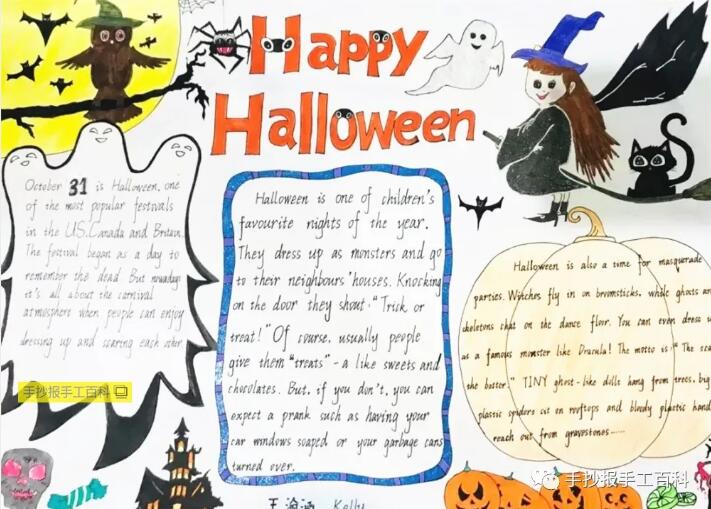 Happy
Halloween
October 31 is Halloween, one
of the most popular festivals
in the U.S, Canada and Britain.
The festival began as a day to
remember the dead. But nowadays
it's all about the carnival
atmosphere when people can enjoy
dressing up and scaring each other
手抄报手工百科
Halloween is one of children's
favourite nights of the year.
They dress up as monsters and go
to their neighbours' houses. Knocking
on the door they shout: "Trick or
treat!" Of course, usually people
give them "treats" - a like sweets and
chocolates. But, if you don't, you can
expect a prank such as having your
car windows soaped or your garbage cans
turned over.
Halloween is also a time for masquerade
parties. Witches fly in on broomsticks, while ghosts an
skeletons chat on the dance floor. You can even dress u
as a famous monster like Dracula! The motto is: "The sca
the better." TINY ghost-like dolls hang from trees, big
plastic spiders sit on rooftops and bloody plastic hand
reach out from gravestones......
Kelly
手抄报手工百科